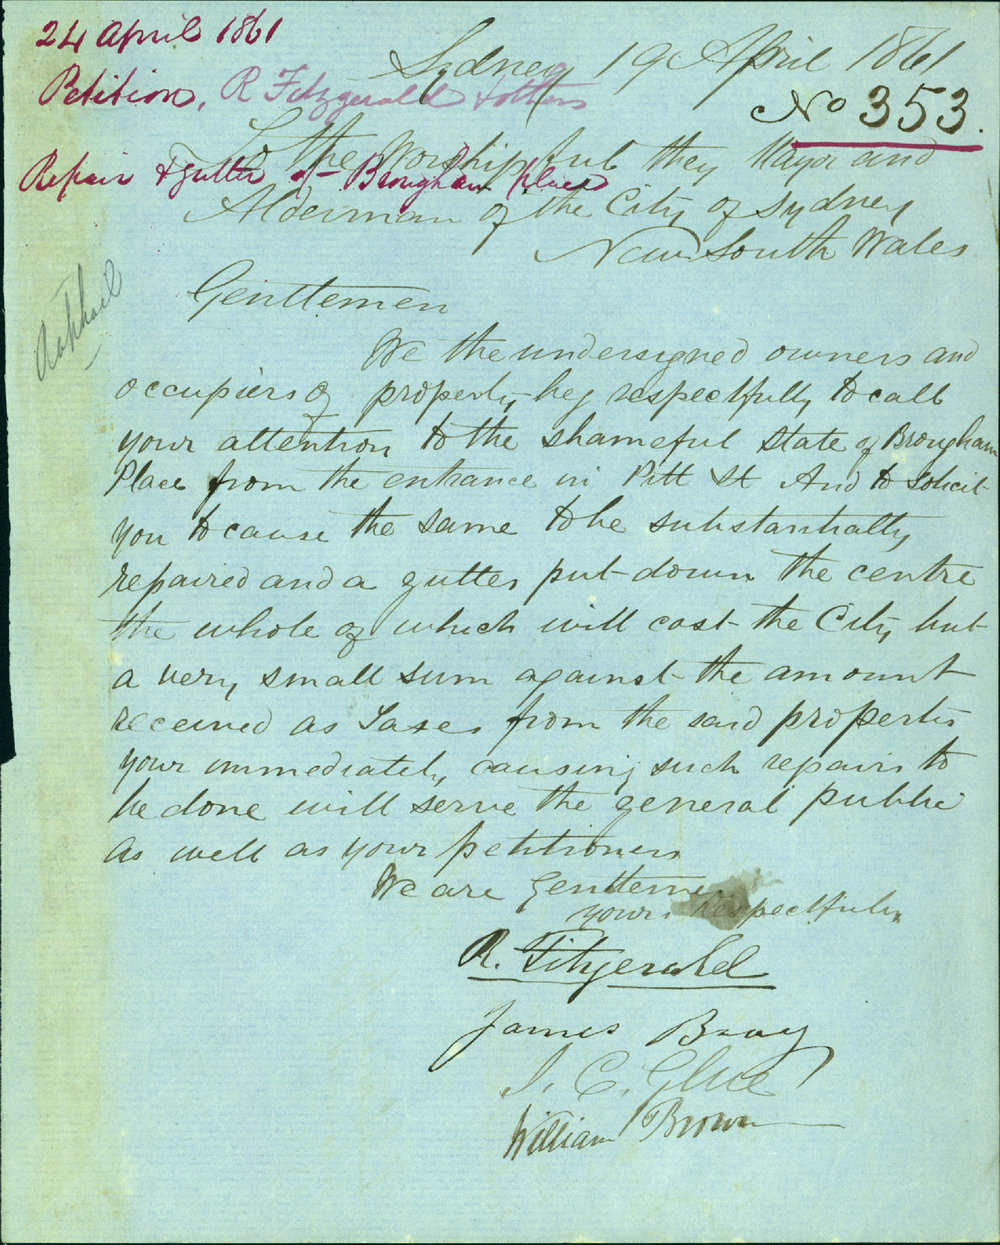 24 April 1861
Petition, R Fitzgerald & others
Repair & gutter of Brougham place
Sydney 19 April 1861
No 353.
To the Worshipful they Mayor and
Alderman of the City of Sydney
New South Wales
Gentlemen
We the undersigned owners and
occupiers of property beg respectfully to call
your attention to the shameful state of Brougham
Place from the entrance in Pitt St And to solicit
you to cause the same to be substantially
repaired and a gutter put down the centre
the whole of which will cost the City but
a very small sum against the amount
received as Taxes from the said properties
your immediately causing such repairs to
be done will serve the general public
as well as your petitioners
We are Gentlemen
yours Respectfully
R. Fitzgerald
James Bray
J. C. Glue
William Brown
Raphael